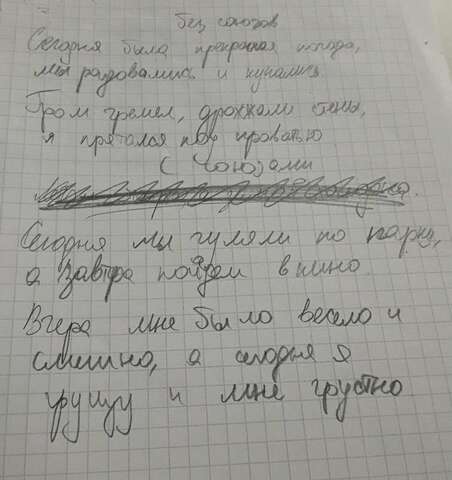 без союзов
Сегодня была прекрасная погода,
мы радовались и купались
Гром гремел, дрожжали стены,
я прятался под кроватью
( Союзами
Сегодня мы гуляли по парку,
а завтра пойдем в кино
Вчера мне было весело и
смешно, а сегодня я
грущу и мне грустно